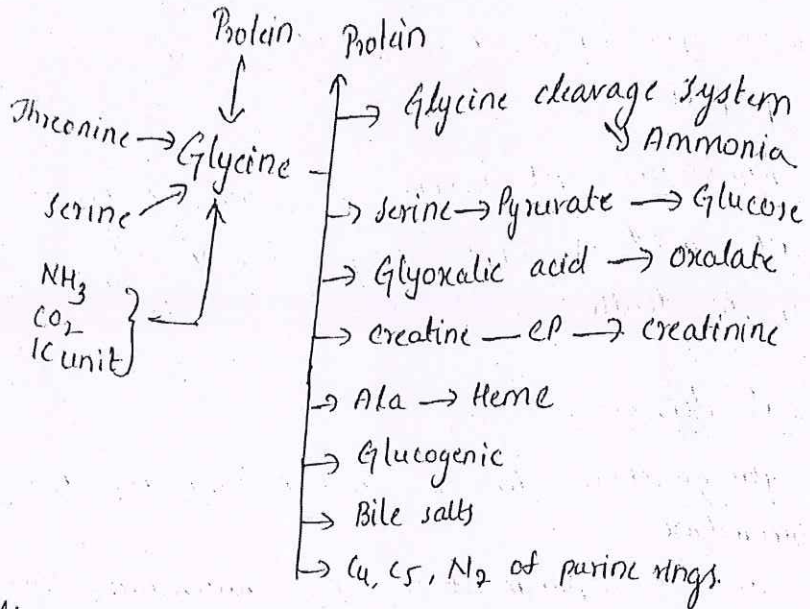 Protein Protein
Threonine → Glycine
Serine
NH3
CO2
1C unit
→ Glycine cleavage system
↘ Ammonia
→ Serine → Pyruvate → Glucose
→ Glyoxalic acid → oxalate
→ creatine — CP → creatinine
→ Ala → Heme
→ Glucogenic
→ Bile salts
→ C4, C5, N7 of purine rings.